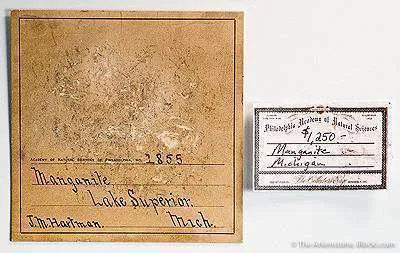 ACADEMY OF NATURAL SCIENCES OF PHILADELPHIA, NO. 1855
Manganite
Lake Superior.
J.M. Hartman. Mich.
Philadelphia Academy of Natural Sciences
$1,250-
Manganite
Michigan
© The-Arkenstone, iRocks.com